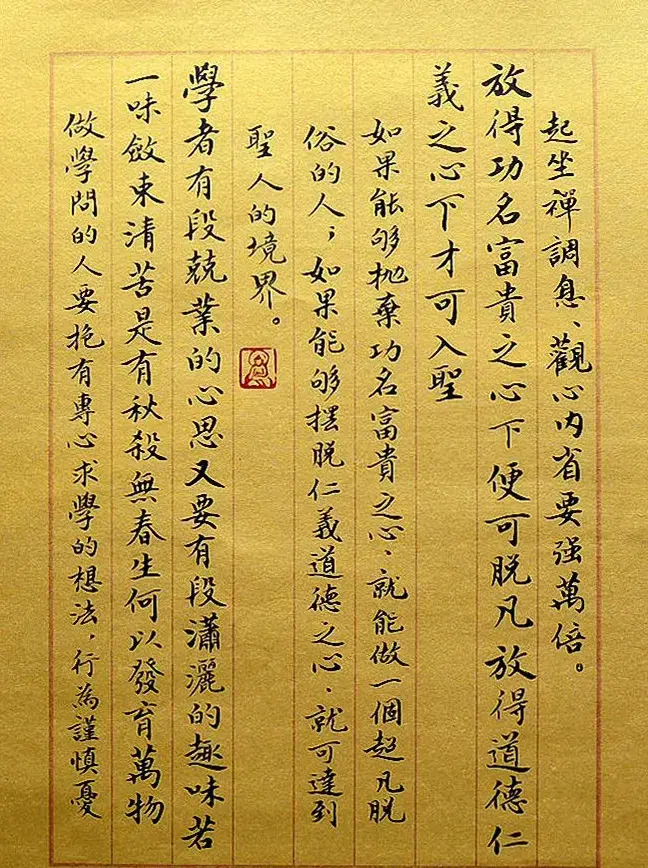 起坐禪調息、觀心內省要强萬倍。
放得功名富貴之心下便可脱凡放得道德仁
義之心下才可入聖
如果能够抛棄功名富貴之心、就能做一個超凡脱
俗的人；如果能够摆脱仁義道德之心、就可達到
聖人的境界。
學者有段兢業的心思又要有段瀟灑的趣味若
一味斂束清苦是有秋殺無春生何以發育萬物
做學問的人要抱有專心求學的想法，行為謹慎憂